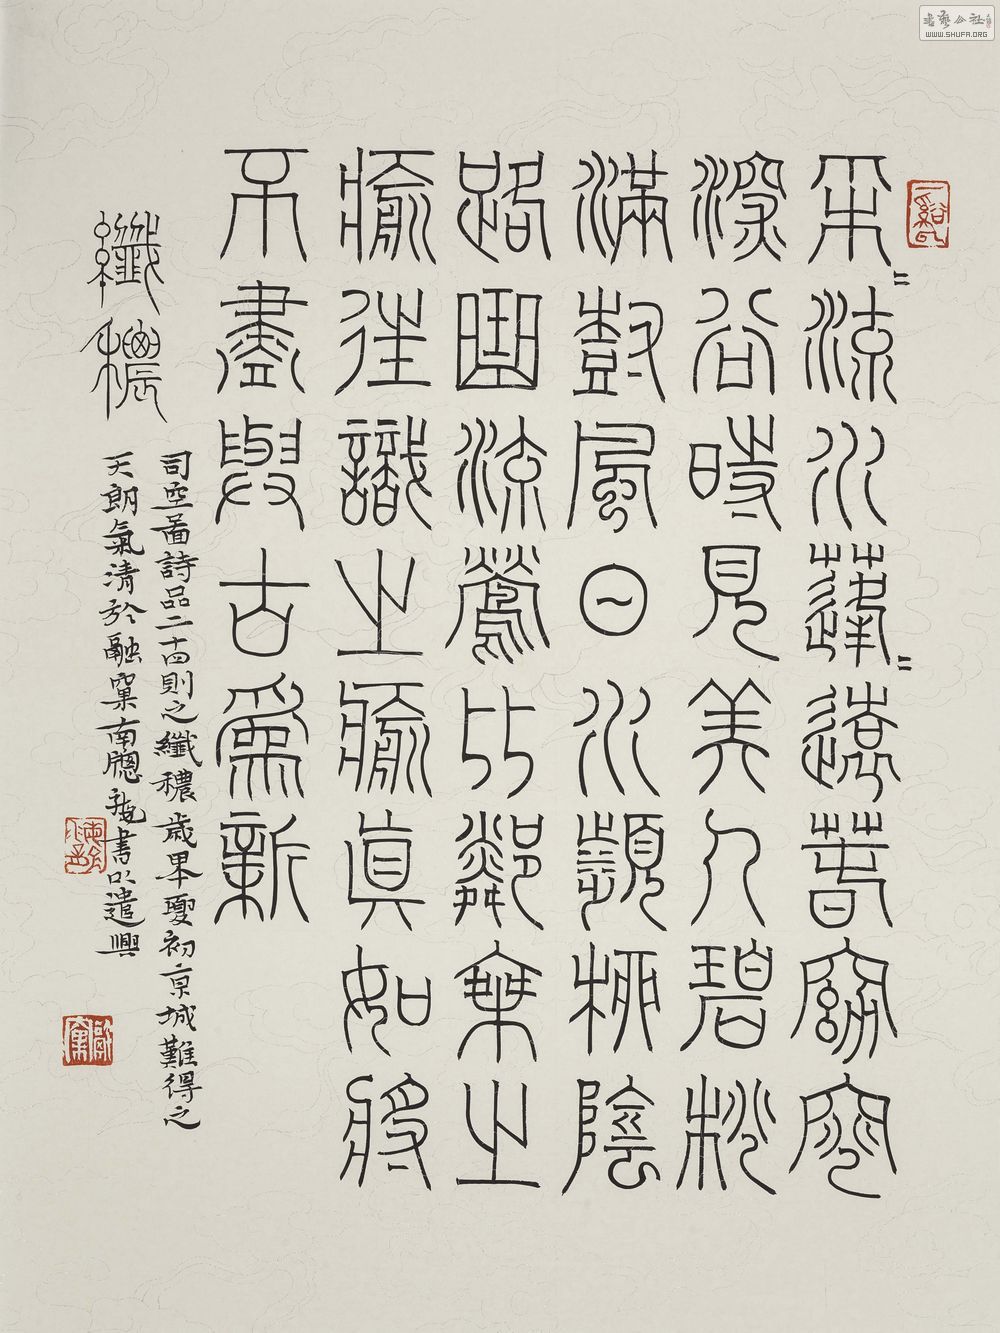 采〻流水蓬〻遠春窈窕
深谷時見美人碧桃
滿樹風日水濱柳陰
路曲流鶯比鄰乘之
瘉往識之瘉真如將
不盡與古為新
纖穠
司空啚詩品二十四則之纖穠歲夏初京城難得之
天朗氣清於融窠南牕書以遣興
書藝公社
WWW.SHUFA.ORG